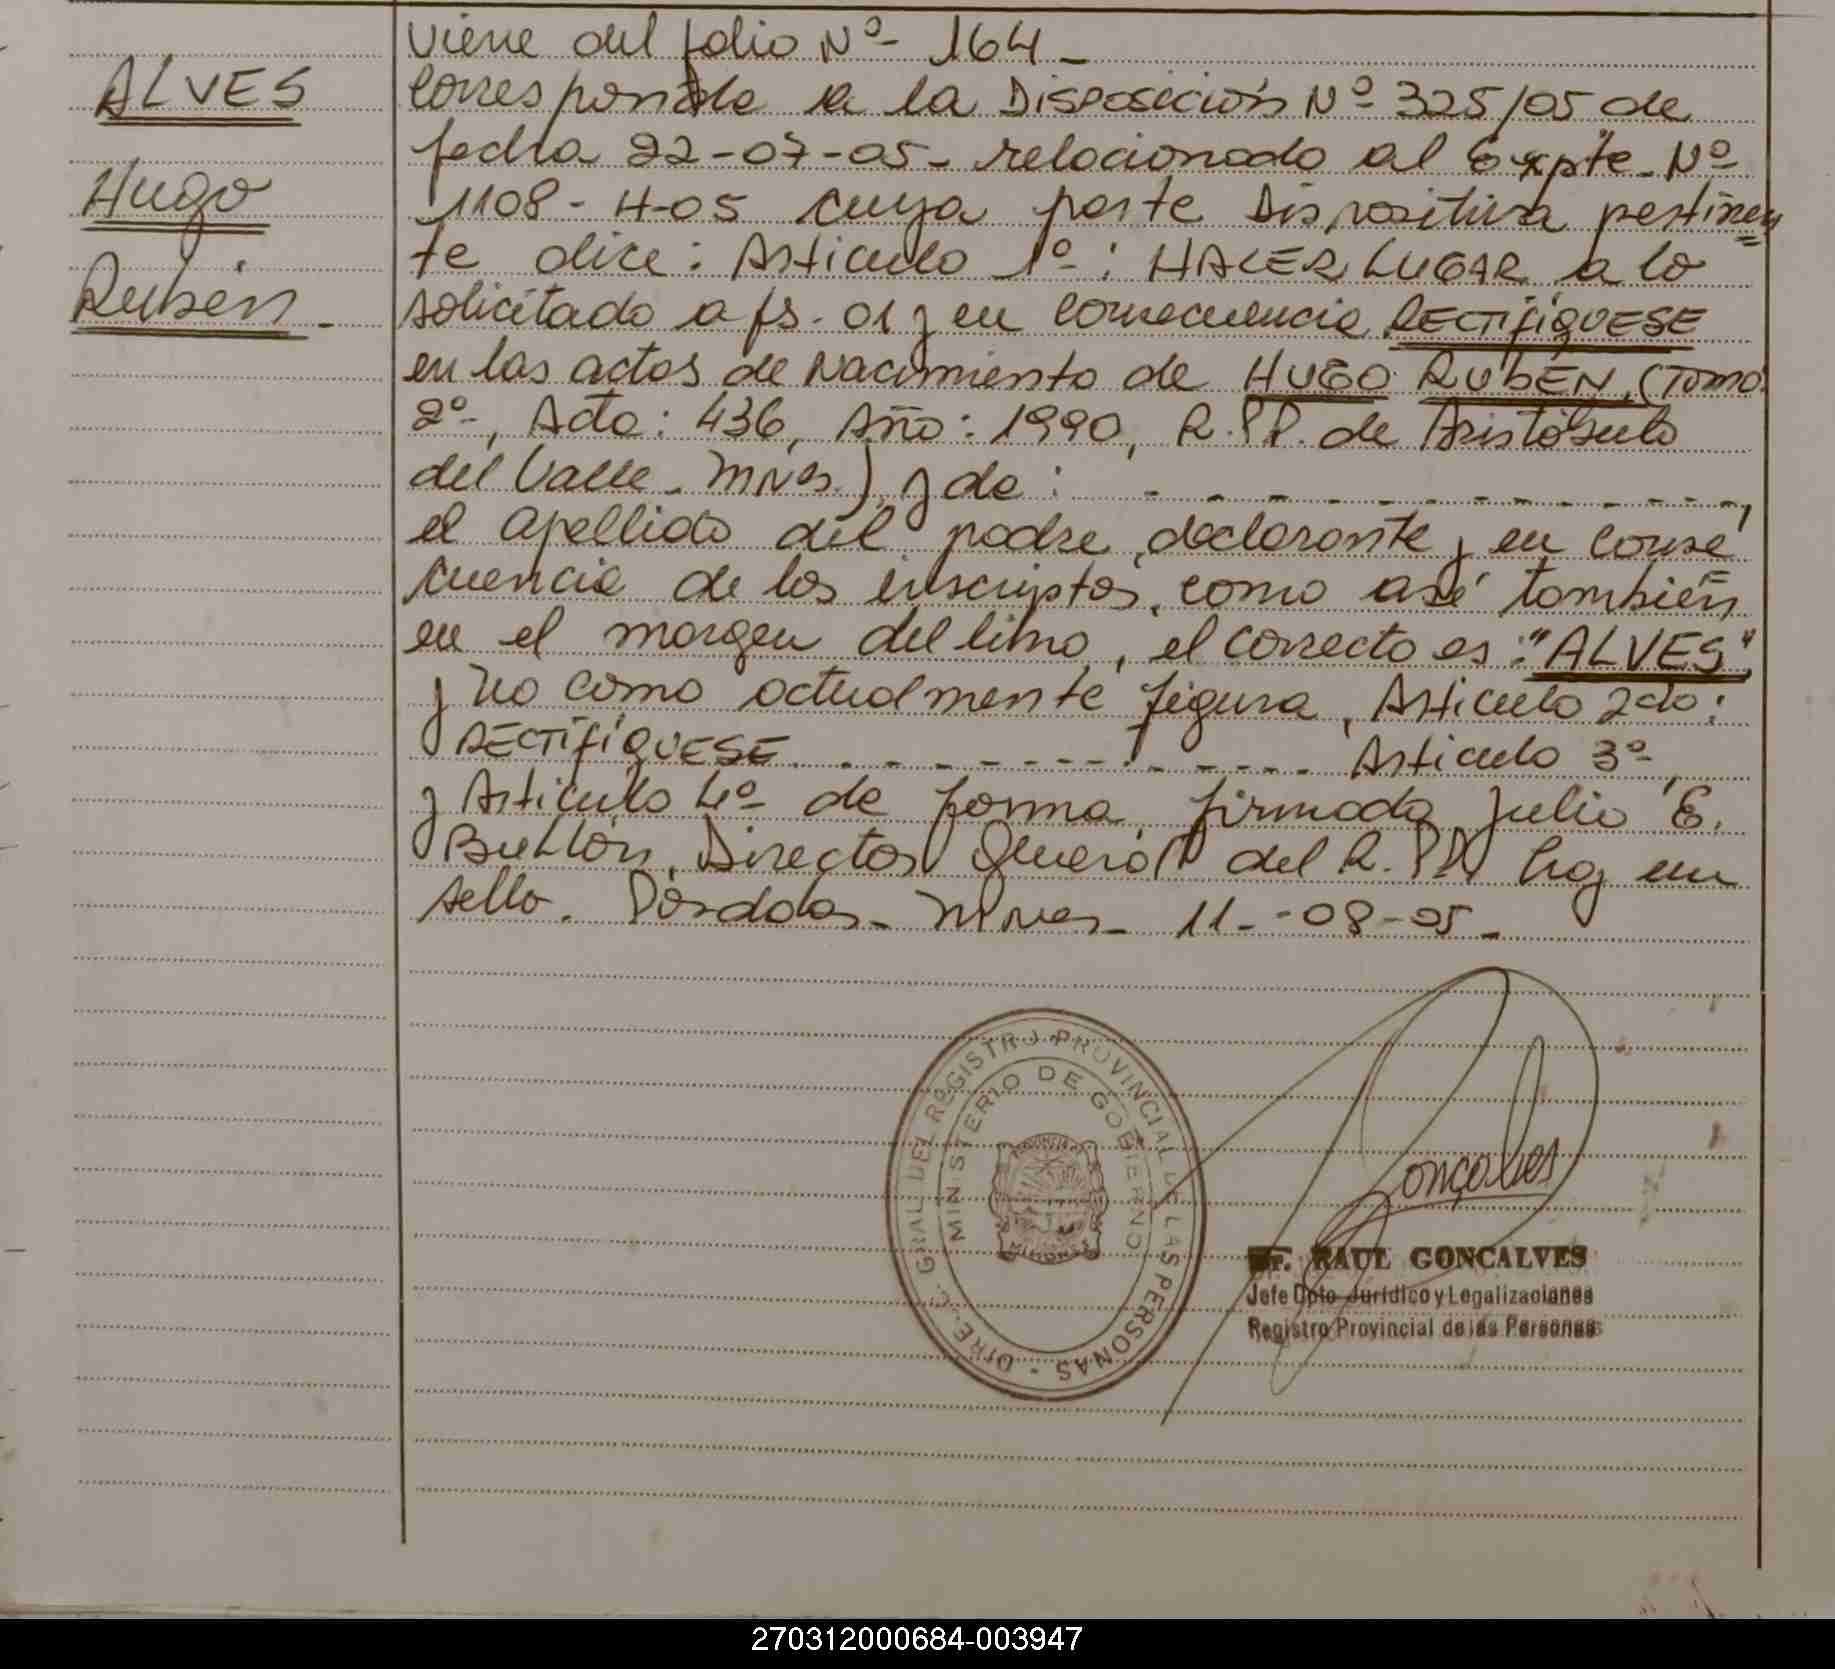 ALVES
Hugo
Rubén.-
Viene del folio Nº- 164_
Corresponde a la Disposición Nº- 325/05 de
fecha 22-07-05- relacionado al Expte. Nº-
1108- H-05 cuya parte Dispositiva pertinen
te dice: Artículo 1º-: HACER LUGAR a lo
solicitado a fs. 01 y en consecuencia RECTIFÍQUESE
en las actas de Nacimiento de HUGO RUBÉN, (Tomo:
2º-, Acta: 436, Año: 1990, R.P.P. de Aristóbulo
del Valle- Mnes.), y de: - - - - - - - - - - - - - -,
el apellido del padre, declarante y en conse
cuencia de los inscriptos, como así también
en el margen del libro, el correcto es: "ALVES",
y no como actualmente figura, Artículo 2do:
RECTIFÍQUESE - - - - - - - - - - - - - Artículo 3º-
y Artículo 4º- de forma, firmado Julio E.
Director General del R.P.P. hay un
sello. Posadas- Mnes- 11--08-05-
DIREC. GRAL DEL REGISTRO PROVINCIAL DE LAS PERSONAS -
MINISTERIO DE GOBIERNO
MISIONES
Gonçalves
RAUL GONCALVES
Jefe Dpto Jurídico y Legalizaciones
Registro Provincial de las Personas
270312000684-003947